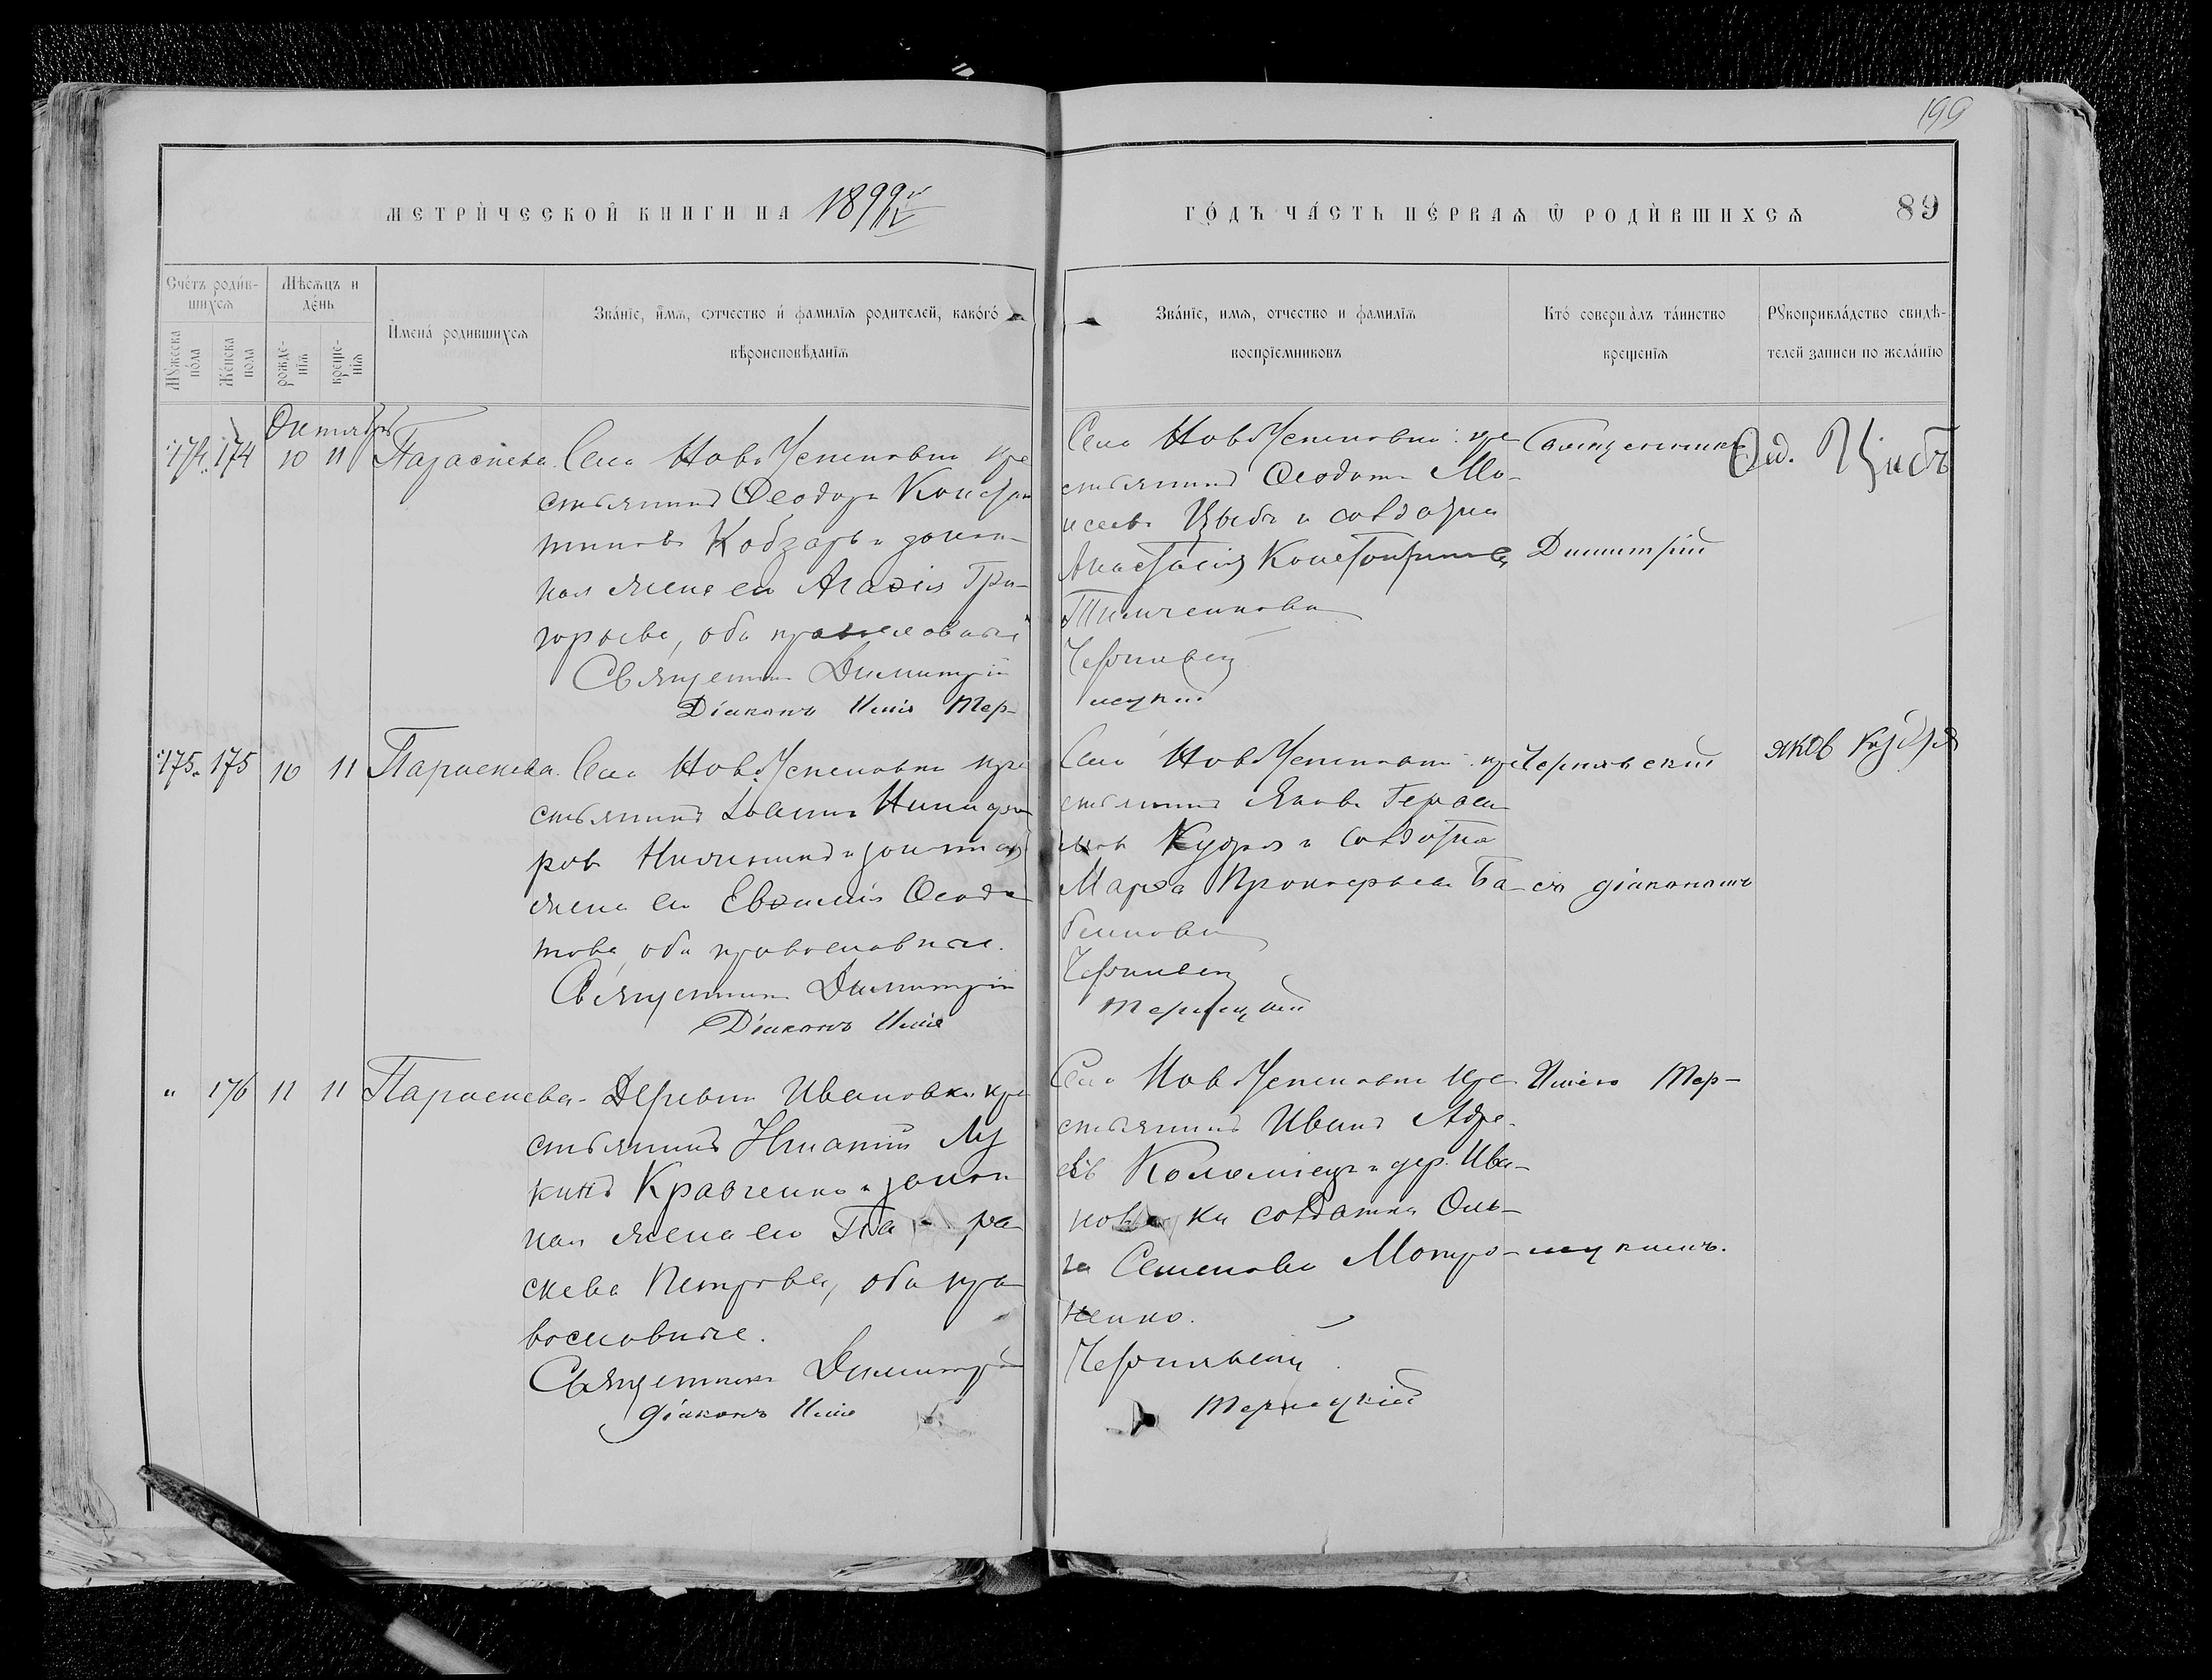 199
МЕТРИЧЕСКОЙ КНИГИ НА 1899
ГОДЪ ЧАСТЬ ПЕРВАЯ Ѿ РОДИВШИХСЯ 89
Счетъ родив-
шихся
Мѣсяцъ и
день
Мужеска
пола
Женска
пола
рожде-
нія
креще-
нія
Имена родившихся
Званіе, имя, отчество и фамилія родителей, какого
вѣроисповѣданія
Званіе, имя, отчество и фамилія
воспріемниковъ
Кто совершалъ таинство
крещенія
Рукоприкладство свидѣ-
телей записи по желанію
Октябрь
174 10 11 Параскева
Села НовоУспеновки кре
стьянинъ Ѳеодоръ Констан
тиновъ Кобзарь и закон-
ная жена его Агаѳія Гри-
горьева, оба православные
Священникъ Димитрій
Діаконъ Илія Тер-
Села НовоУспеновки кре
стьянинъ Ѳеодотъ Мо-
исеевъ Цыбъ и солдатка
Анастасія Константинова
Тимченкова
Чернявск
нецкій
Священникъ
Димитрій
Ѳед. Цибъ
175 10 11 Параскева
Села НовоУспеновки кре
стьянинъ Іоаннъ Никифо
ровъ и законная
жена его Евѳимія Ѳеодо
това, оба православные.
Священникъ Димитрій
Діаконъ Илія
Села НовоУспеновки кре
стьянинъ Яковъ Гераси
мовъ Кудря и солдатка
Марѳа Прокофьева Ба-
Чернявск
Тернецкій
Чернявскій
съ діакономъ
яков Кудря
" 176 11 11 Параскева
Деревни Ивановки кре
стьянинъ Игнатій Лу
кинъ Кравченко и закон
ная жена его Па-ра
скева Петрова, оба пра
вославные.
Священникъ Димитрій
діаконъ Илія
Села НовоУспеновки кре
стьянинъ Иванъ Адре-
евъ Коломіецъ и дер. Ива-
новки солдатка Оль-
га Семенова Мотро-
ненко.
Чернявскій
Тернецкій
Иліею Тер-
нецкимъ.